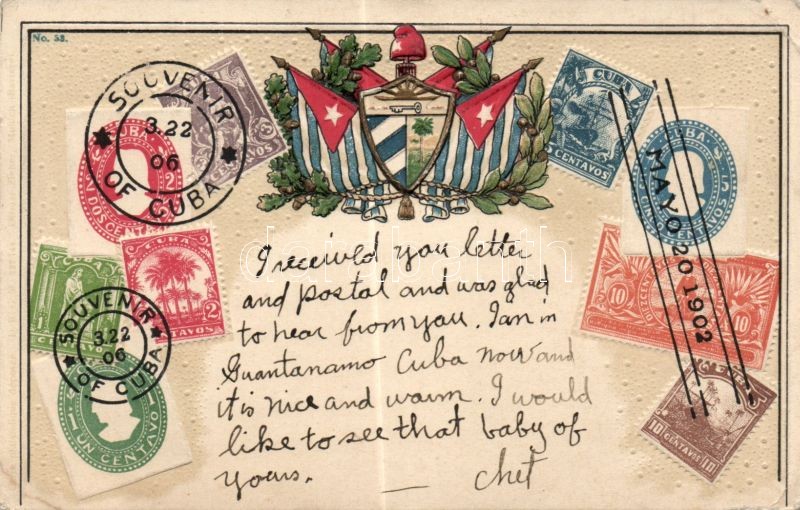 No. 53.
SOUVENIR
3.22
06
OF CUBA
CUBA
DOS CENTAVOS
CUBA
CENTAVOS
MAYO 20 1902
10
10 c.
CUBA
2
CENTAVOS
SOUVENIR
3.22
06
OF CUBA
1 UN CENTAVO
10 CENTAVOS 10
I received you letter
and postal and was glad
to hear from you. I an in
Guantanamo Cuba now and
it is nice and warm. I would
like to see that baby of
yours. — Chet